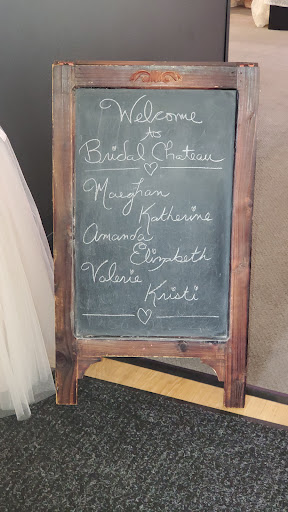 Welcome
To
Bridal Chateau
Maeghan
Katherine
Amanda
Elizabeth
Valerie
Kristi